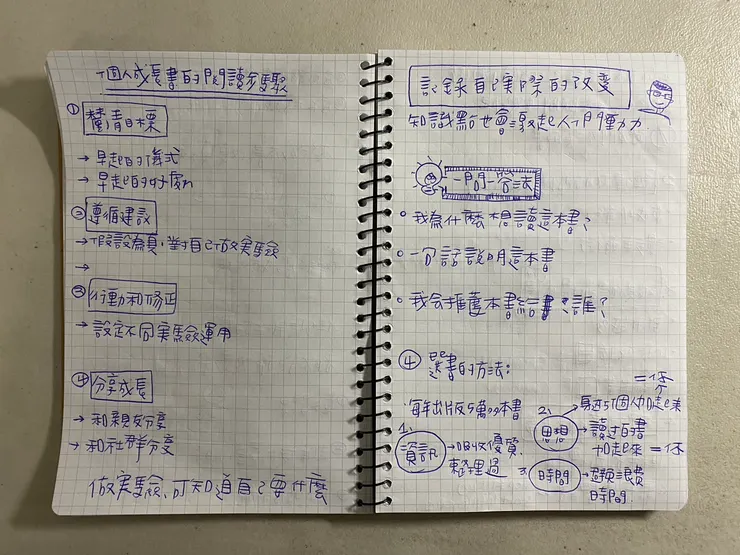 個人成長書的閱讀步驟
① 釐清目標
→ 早起的儀式
→ 早起的好處
② 遵循建議
→ 假設為真,對自己做實驗
→
③ 行動和修正
→ 設定不同實驗運用
④ 分享成長
→ 和親友分享
→ 和社群分享
做實驗,可知道自己要什麼
記錄自己實際的改變
知識點也會引起人們動力
一問一答法
我為什麼想讀這本書?
一句話說明這本書
我会推薦本書給誰?
④ 選書的方法:
每年出版5萬本書
1. 資訊 → 吸收優質、整理過
2. 思想 → 身邊5個人加起來 = 你
→ 讀过的書加起來 = 你
3. 時間 → 浪費時間